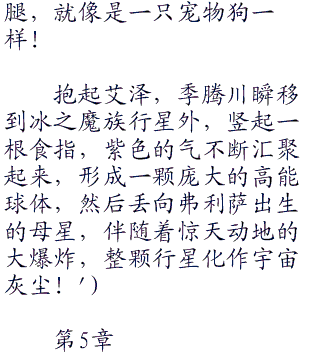 腿，就像是一只宠物狗一
样！
抱起艾泽，季腾川瞬移
到冰之魔族行星外，竖起一
根食指，紫色的气不断汇聚
起来，形成一颗庞大的高能
球体，然后丢向弗利萨出生
的母星，伴随着惊天动地的
大爆炸，整颗行星化作宇宙
灰尘！')
第5章